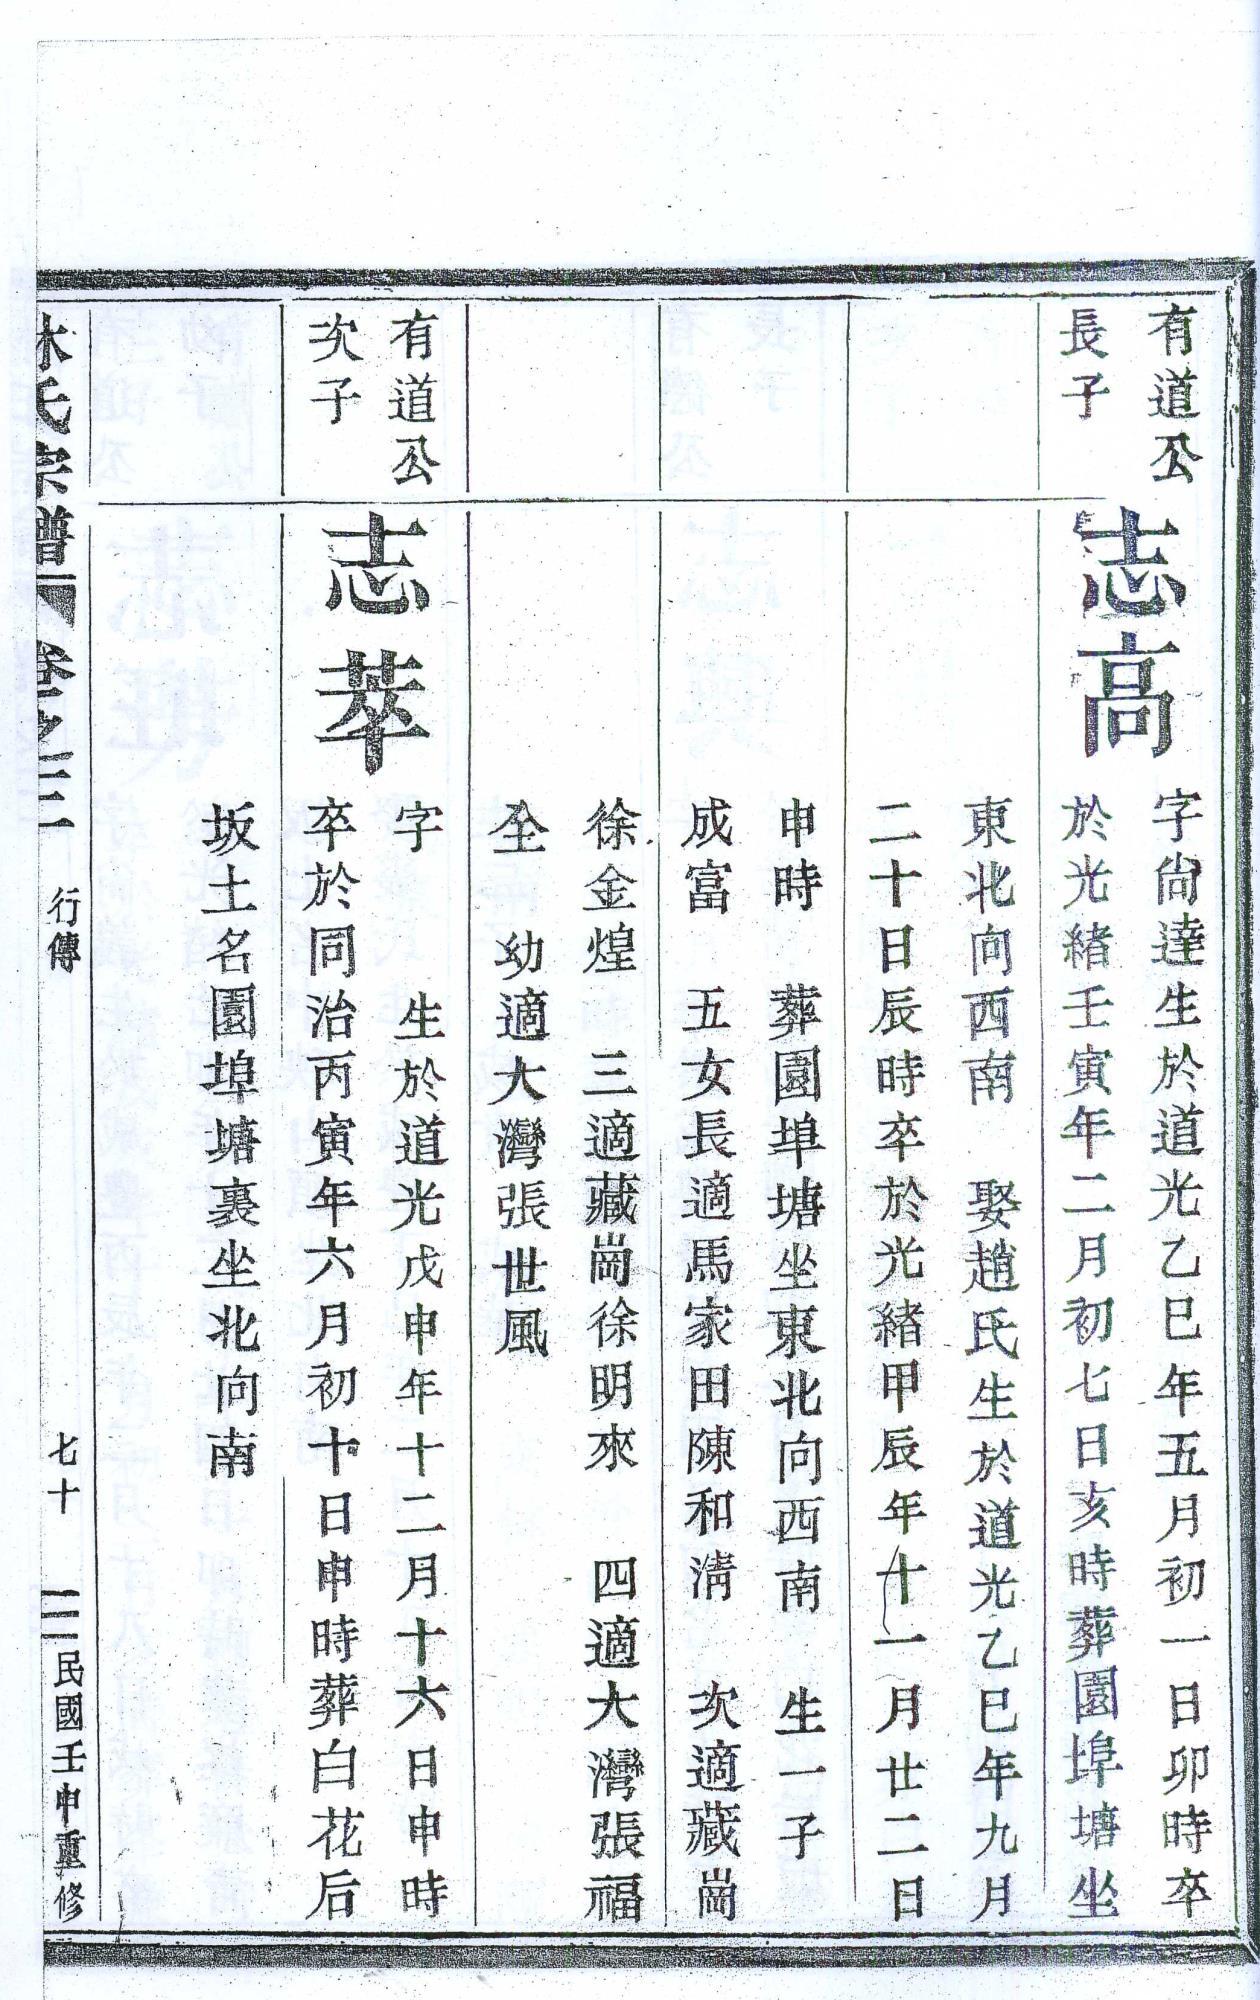 有道公
長子
志高
字尙達生於道光乙巳年五月初一日卯時卒
於光緒壬寅年二月初七日亥時葬園埠塘坐
東北向西南　娶趙氏生於道光乙巳年九月
二十日辰時卒於光緒甲辰年十一月廿二日
申時　葬園埠塘坐東北向西南　生一子
成富　五女長適馬家田陳和淸　次適藏崗
徐金煌　三適藏崗徐明來　四適大灣張福
全　幼適大灣張世風
有道公
次子
志萃
字　生於道光戊申年十二月十六日申時
卒於同治丙寅年六月初十日申時葬白花后
坂土名園埠塘裏坐北向南
林氏宗譜　卷之三　行傳　七十　民國壬申重修